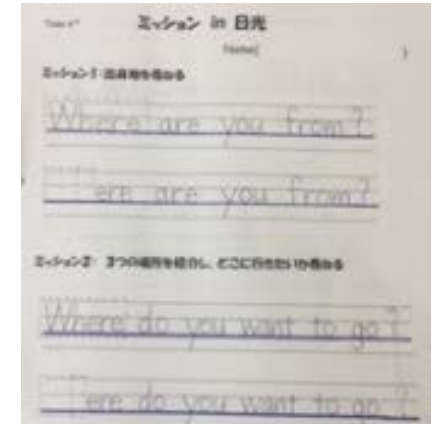 ミッション in 日光
Name(                    )
ミッション1:出身地を尋ねる
Where are you from?
ere are you from?
ミッション2: 3つの場所を紹介し、どこに行きたいか尋ねる
Where do you want to go?
ere do you want to go?